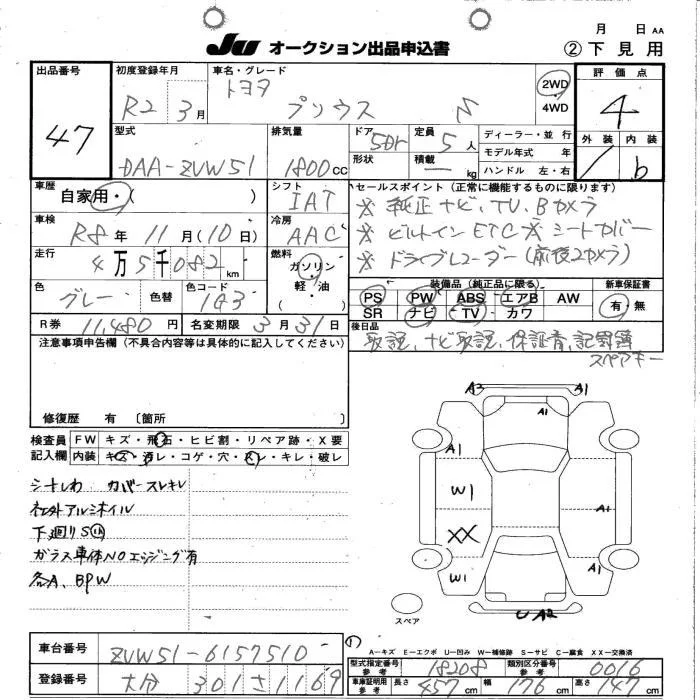 月 日 AA
JU オークション出品申込書
② 下見用
出品番号
47
初度登録年月
R2 3月
車名・グレード
トヨタ プリウス
2WD
4WD
評価点
4
外装 内装
1 b
型式
DAA-ZVW51
排気量
1800cc
ドア 5Dr
形状
定員 5人
積載 — kg
ディーラー・並行
モデル年式 年
ハンドル 左・右
車歴
自家用・( )
シフト
IAT
車検
R8年11月(10日)
冷房
AAC
走行
4万5千082km
燃料
ガソリン・
軽・油
・
色
グレー
色替
色コード
1G3
R券 11,480円
名変期限 3月31日
セールスポイント(正常に機能するものに限ります)
※ 純正ナビ、TV、Bカメラ
※ ビルトインETC ※ シートカバー
※ ドライブレコーダー(前後2カメラ)
装備品(純正品に限る)
PS PW ABS エアB AW
SR ナビ TV カワ
新車保証書
有・無
後日品
取説、ナビ取説、保証書、記録簿
スペアキー
注意事項申告欄(不具合内容等は具体的に記入してください)
修復歴 有 〔箇所
検査員
記入欄
FW キズ・飛石・ヒビ割・リペア跡・X要
内装 キズ・汚レ・コゲ・穴・スレ・キレ・破レ
シートしわ カバースレキレ
社外アルミホイル
下廻りS
ガラス車体NOエッジング有
各A、BPW
A3 A1
A1
A1
W1
A1
XX
W1
A1
U A2
スペア
A-キズ E-エクボ U-凹み W-補修跡 S-サビ C-腐食 XX-交換済
車台番号
ZVW51-6157510
登録番号
大分 301 さ 1169
型式指定番号
参考
18208
類別区分番号
参考
0016
車庫証明用
参考
長さ 457cm
幅 176cm
高さ 147cm